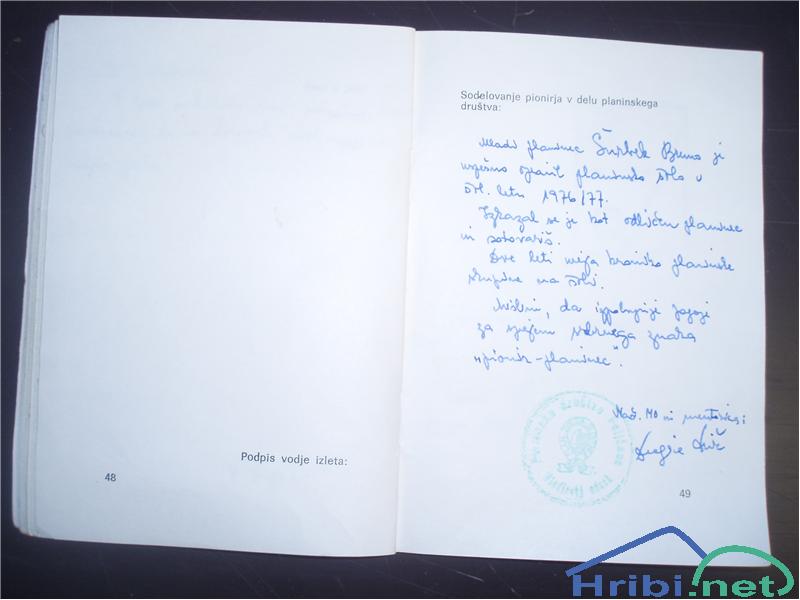 Podpis vodje izleta:
48
Sodelovanje pionirja v delu planinskega
društva:
Mladi planinec Šurbek Bruno je
uspešno opravil planinsko šolo v
šol. letu 1976/77.
Izkazal se je kot odličen planinec
in sotovariš.
Dve leti kroniko planinske
skupine na šoli.
Mislim, da izpolnjuje pogoje
za sprejem
"pionir-planinec".
Nač. MO in mentorica:
49
Hribi.net